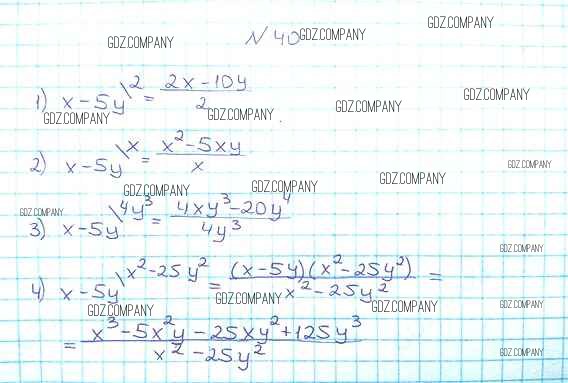 GDZ.COMPANY
№ 40 GDZ.COMPANY
GDZ.COMPANY
1) x-5y\2 = 2x-10y / 2
GDZ.COMPANY GDZ.COMPANY GDZ.COMPANY GDZ.COMPANY
2) x-5y\x = x²-5xy / x
GDZ.COMPANY
GDZ.COMPANY GDZ.COMPANY GDZ.COMPANY
GDZ.COMPANY
3) x-5y\4y³ = 4xy³-20y⁴ / 4y³
GDZ.COMPANY
4) x-5y\x²-25y² = (x-5y)(x²-25y²) / x²-25y² =
GDZ.COMPANY GDZ.COMPANY GDZ.COMPANY GDZ.COMPANY GDZ.COMPANY
= x³-5x²y-25xy²+125y³ / x²-25y²
GDZ.COMPANY